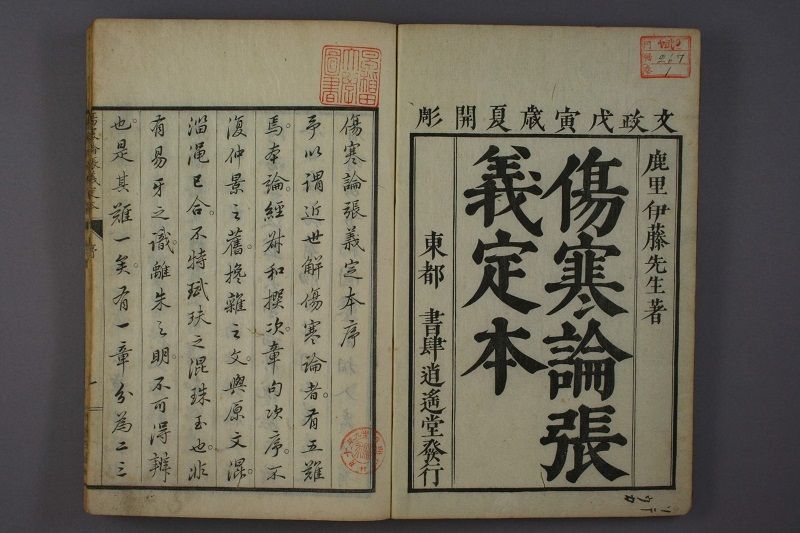 文政戊寅歳夏開彫
鹿里伊藤先生著
傷寒論張
義定本
東都 書肆逍遙堂發行
傷寒論張義定本序
予以謂近世解傷寒論者有五難
焉本論經尉和撰次章句次序不
復仲景之舊攙雜之文與原文混
淄澠已合不特珷玞之混珠玉也非
有易牙之識離朱之明不可得辨
也是其難一矣有一章分為二三